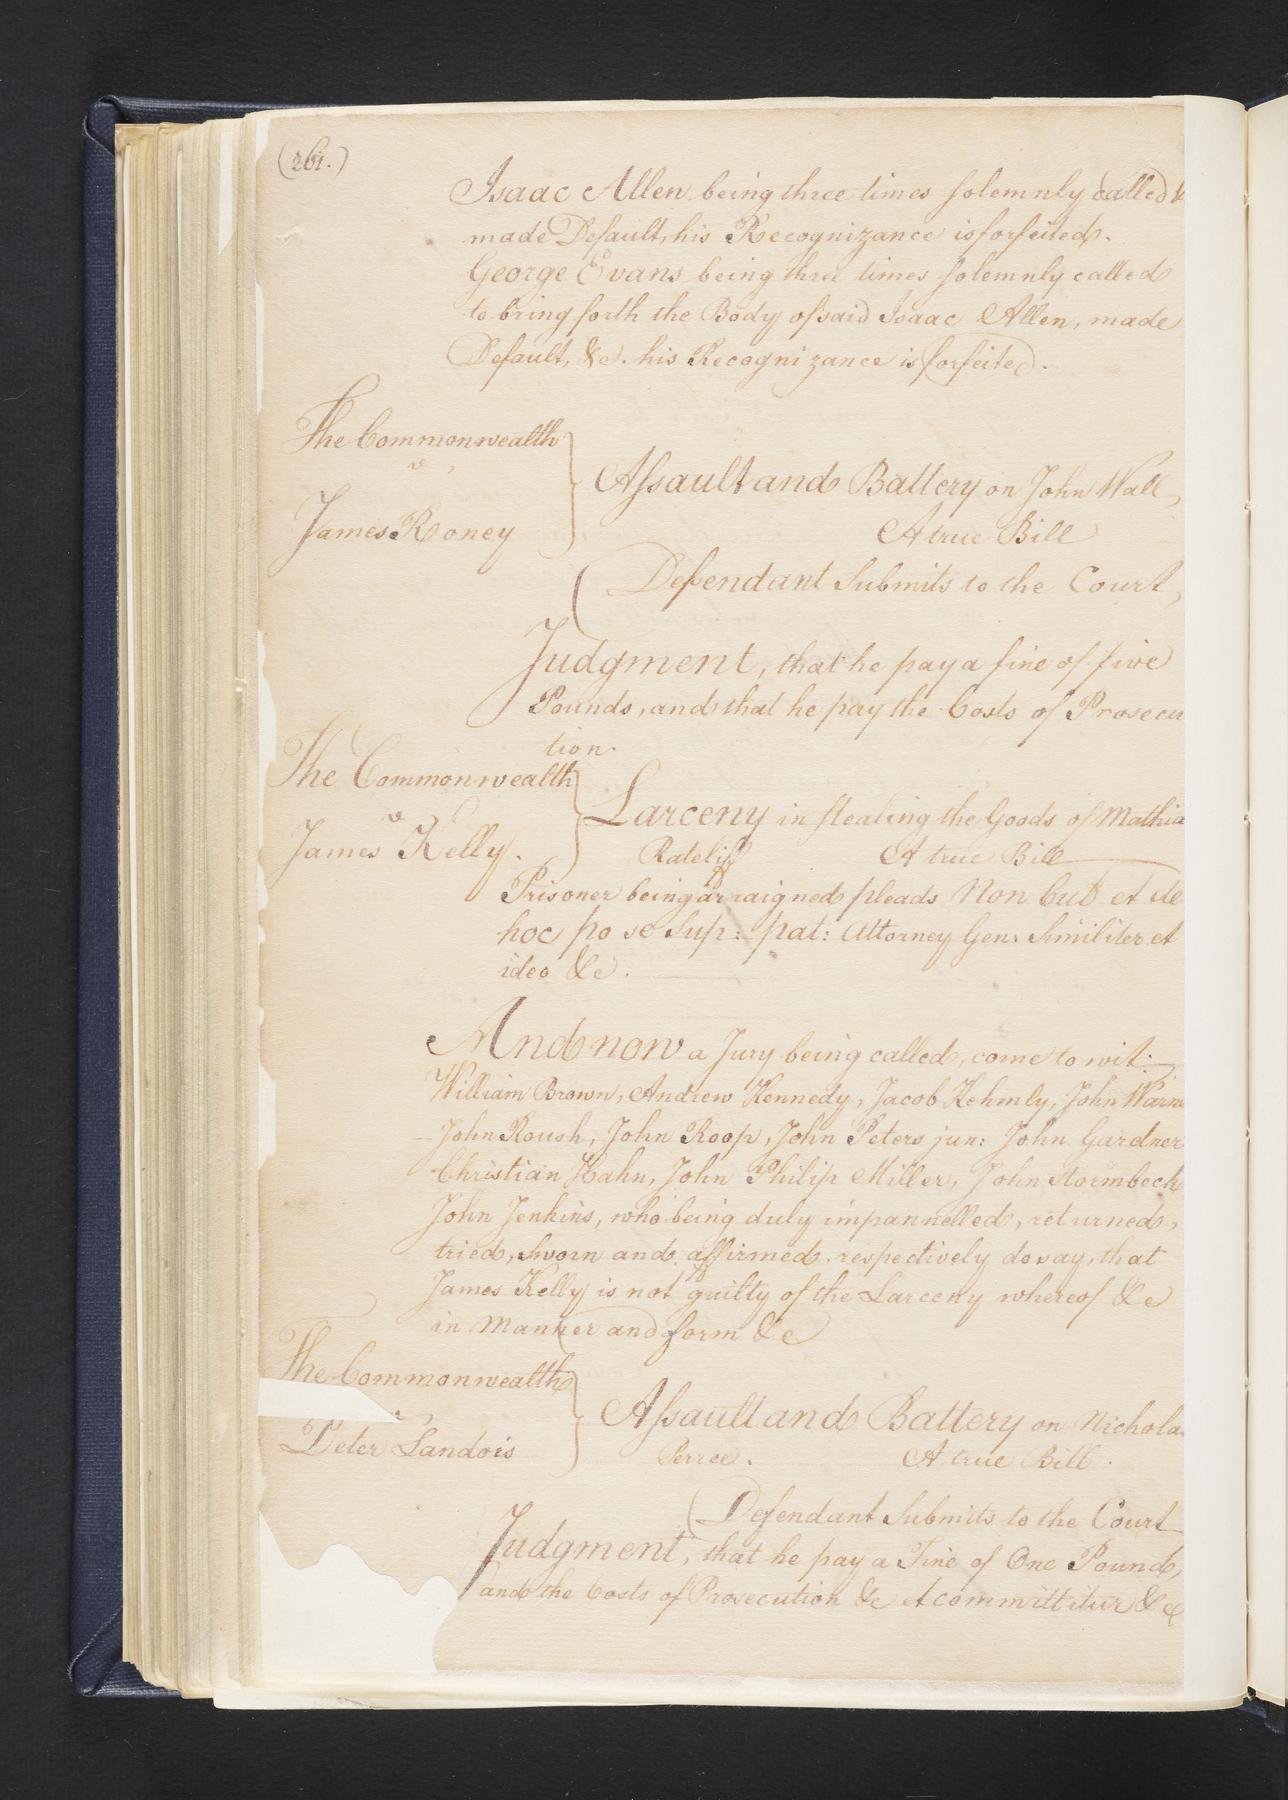 (261.)
Isaac Allen being three times solemnly called &
made Default, his Recognizance is forfeited.
George Evans being three times solemnly called
to bring forth the Body of said Isaac Allen, made
Default, &c. his Recognizance is forfeited.
The Commonwealth
v
James Roney
Assault and Battery on John Wall,
A true Bill
Defendant Submits to the Court,
Judgment, that he pay a fine of five
Pounds, and that he pay the Costs of Prosecu
tion.
The Commonwealth
v
James Kelly.
Larceny in stealing the Goods of Mathia
Ratelif A true Bill
Prisoner being arraigned pleads Non Cul et de
hoc po se Sup: pat: Attorney Gen: Similiter et
ideo &c.
And now a Jury being called, come to wit:
William Brown, Andrew Kennedy, Jacob Kehmly, John Warne
John Roush, John Roop, John Peters jun: John Gardner
Christian Hahn, John Philip Miller, John Stormbeck
John Jenkins, who being duly impannelled, returned,
tried, Sworn and affirmed, respectively do say, that
James Kelly is not guilty of the Larceny whereof &c
in Manner and form &c
The Commonwealth
Peter Landois
Assault and Battery on Nichola
Perree. A true Bill.
Defendant Submits to the Court
Judgment, that he pay a Fine of One Pound,
and the Costs of Prosecution &c et committitur &c